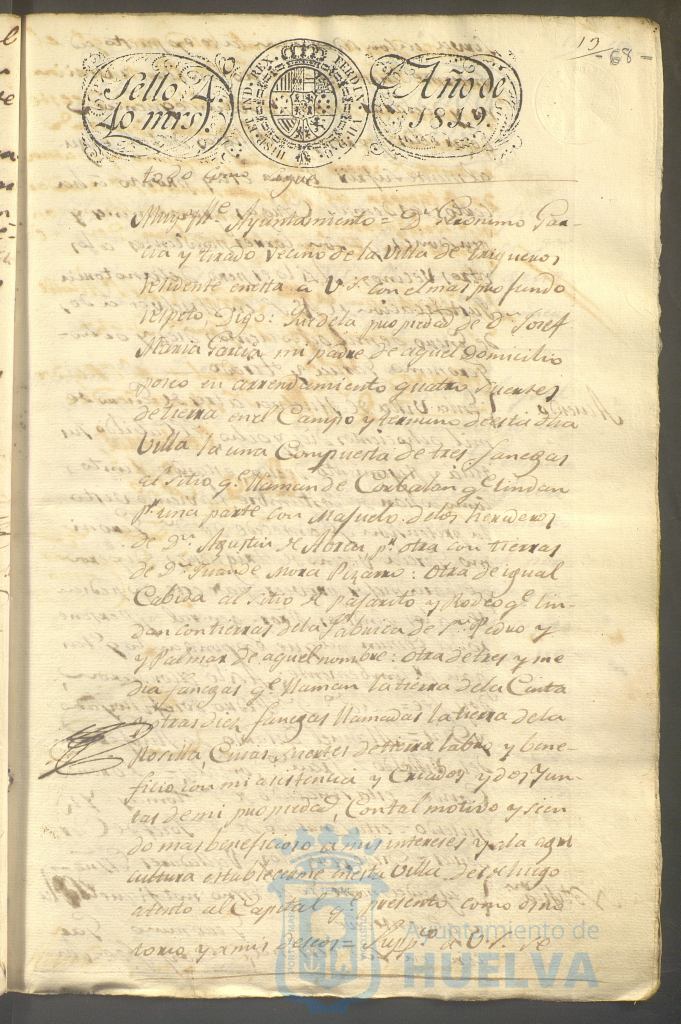 13
- 68 -
Sello 4.
40 mrs.
HISPET IND. REX
Año de
1819.
Muy Ille. Ayuntamiento = Dn. Geronimo Gar-
cia y tirado Vecino de la Villa de trigueros
residente en esta a V.S. con el mas profundo
respeto, Digo: Que de la propiedad de Dn. Josef
Maria Garcia mi padre de aquel domicilio
poseo en arrendamiento quatro suertes
de tierra en el Campo y termino de esta dha
Villa la una Compuesta de tres fanegas
al sitio qe. llaman de Corbalan qe. lindan
pr. una parte con Majuelo de los herederos
de Dn. Agustin pr. otra con tierras
de Dn. Juan de Mora Pizarro: Otra de igual
Cabida al sitio el pajarito y Rodeo qe. lin-
dan con tierras de la fabrica de Sn. Pedro y
y Palmar de aquel nombre: otra de tres y me
dia fanegas qe. llaman la tierra de la Cinta
y otras diez fanegas llamadas la tierra de la
Rosilla, Cuias suertes de tierra labro y bene-
ficio con mi asistencia y Criados y dos Jun-
tas de mi propiedad, Con tal motivo y sien
do mas beneficioso a mis intereses y a la agri
cultura establecerme en esta Villa desde luego
atento al Capital qe. presento como
torio, y a mis deseos = Suppco. a V.S. se
Ayuntamiento de
HUELVA